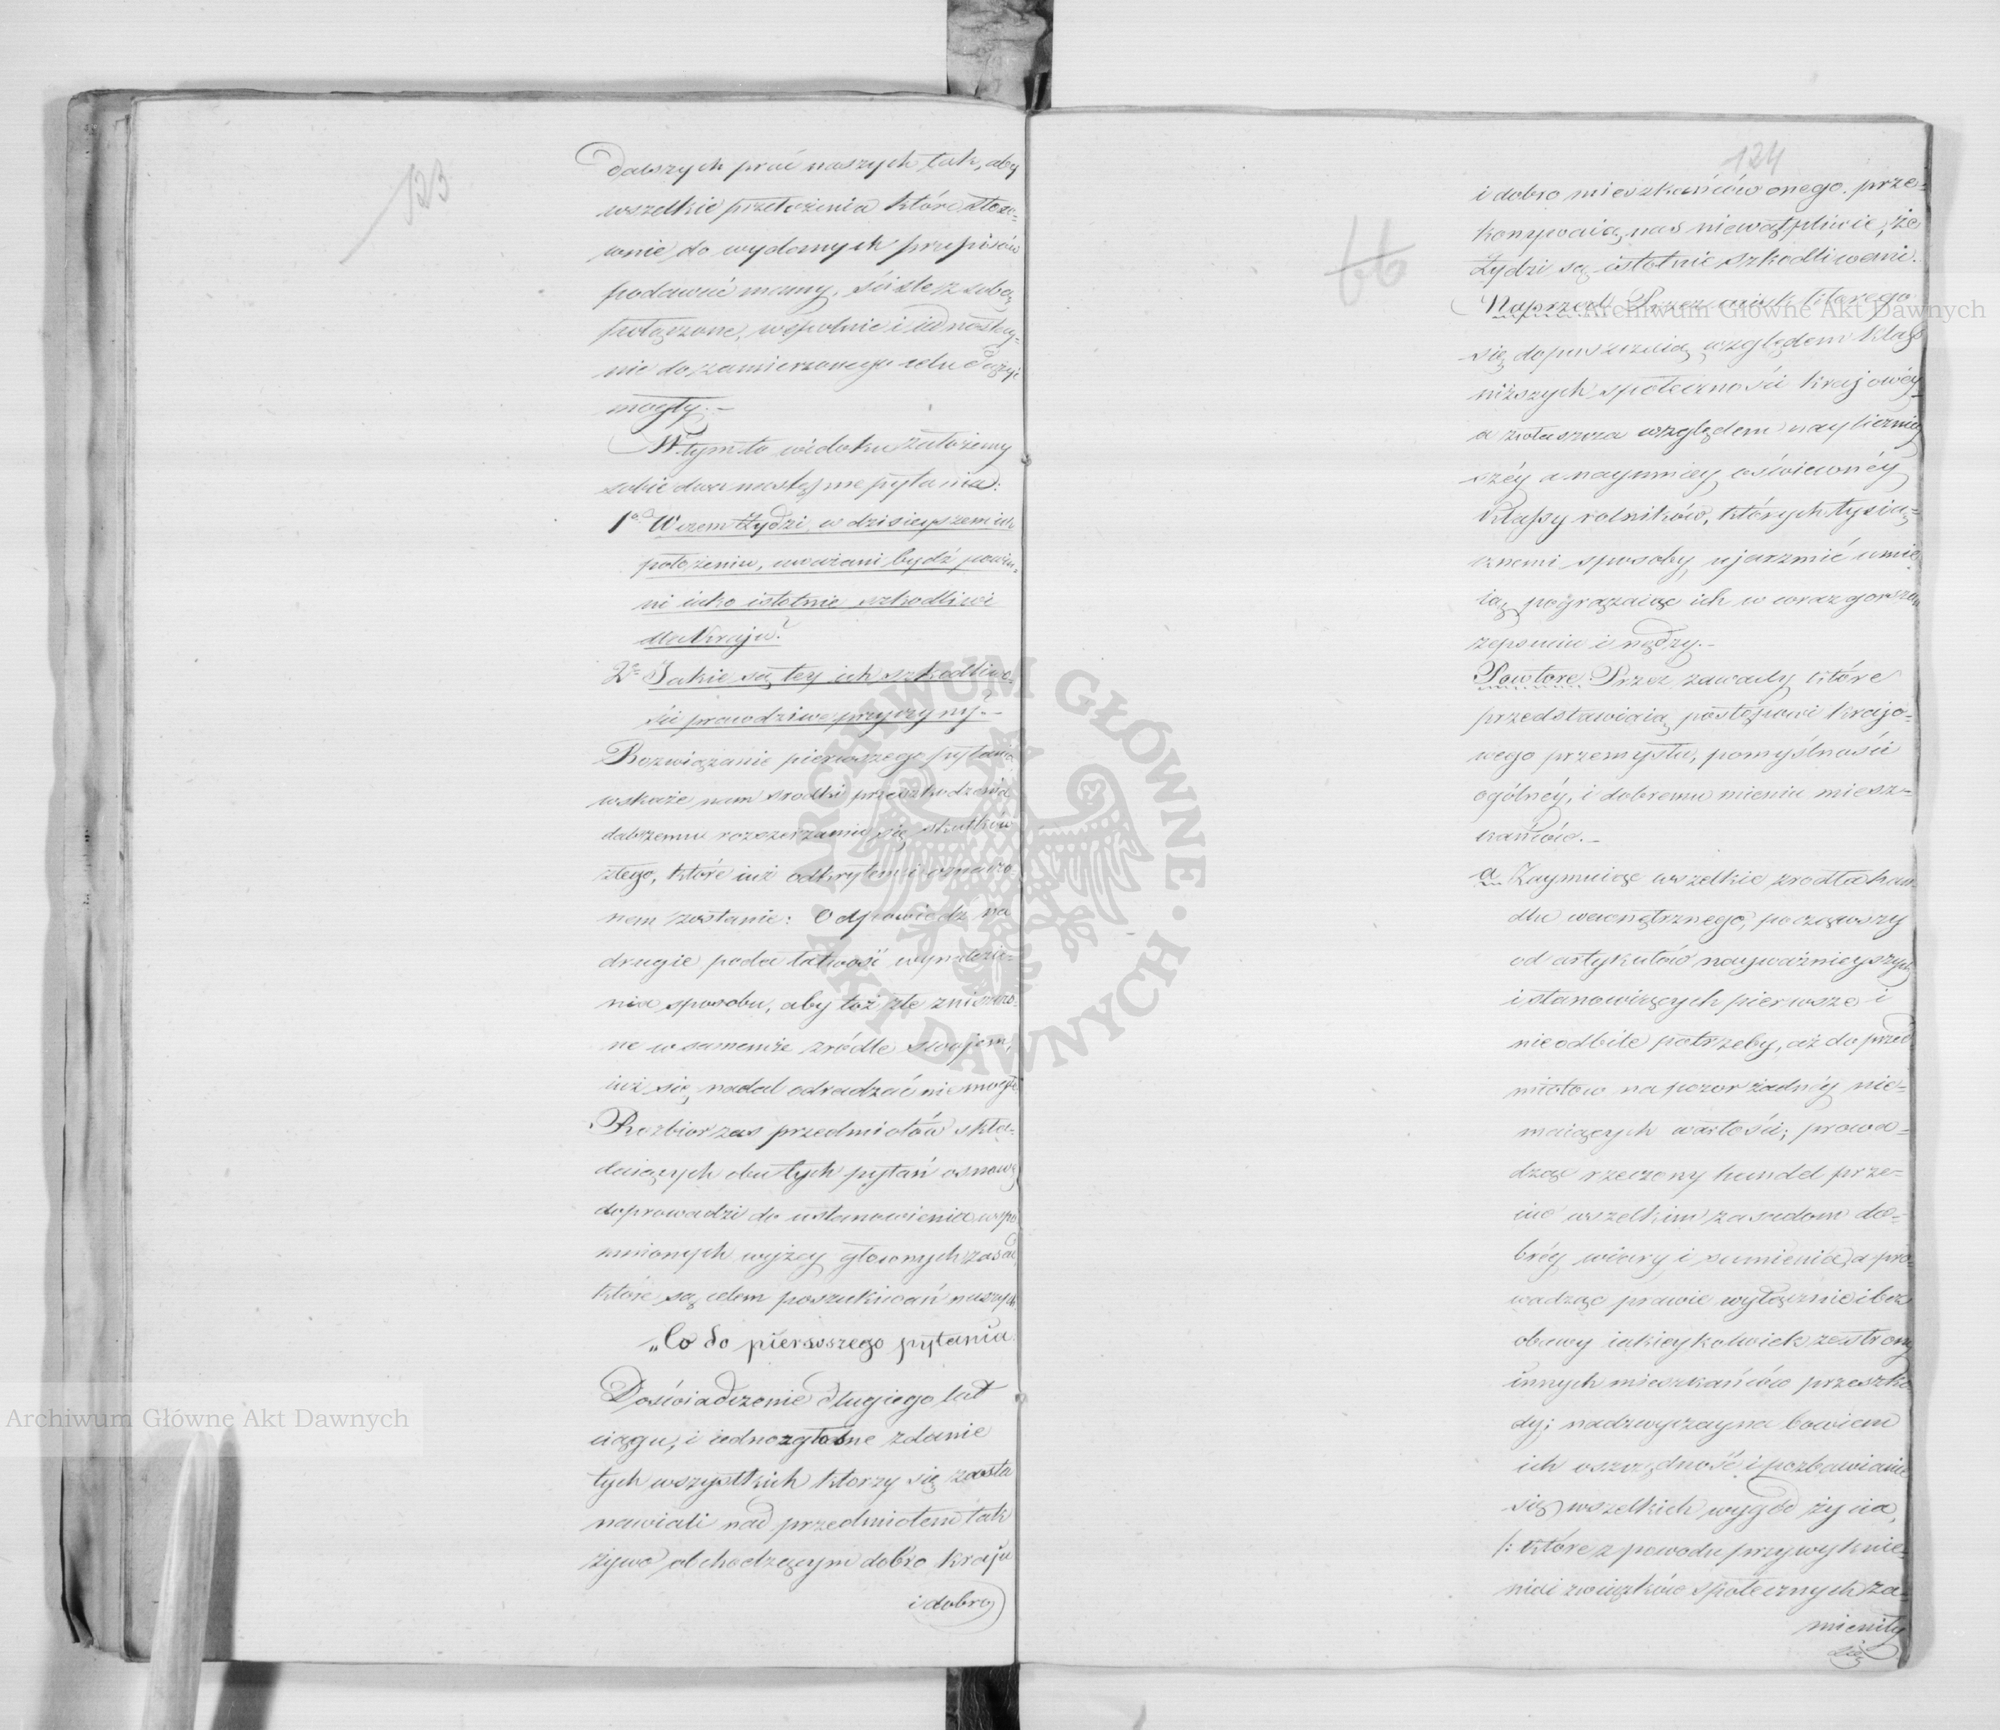 123
dalszych prac naszych tak, aby
wszelkie przełożenia które stoso-
wnie do wydanych przepisów
podawać mamy, ściśle z sobą
połączone, wspólnie i iednostay-
nie do zamierzonego celu dążyć
mogły.-
W tym to widoku założemy
sobie dwa następne pytania:
1o W czem Żydzi, w dzisieyszem ich
położeniu, uważani bydź powin-
ni iako istotnie szkodliwi
dla Kraju?
2e Jakie są tey ich szkodliwo-
ści prawdziwe przyczyny?-
Rozwiązanie pierwszego pytania
wskaże nam srodki przeszkodzenia
dalszemu rozszerzaniu się skutków
złego, które iuż odkrytem i oznaczo-
nem zostanie: Odpowiedz na
drugie poda łatwość wynalezie-
nia sposobu, aby toż złe zniszczo-
ne w samemże źródle swojem,
iuż się nadal odradzać nie mogło
Rozbior zas przedmiotów skła-
daiących obu tych pytań osnowę
doprowadzi do ustanowienia wspo
mnionych wyżey głownych zasad,
które są celem poszukiwań naszych
„Co do pierwszego pytania.
Doświadczenie długiego lat
ciągu, i iednozgłosne zdanie
tych wszystkich ktorzy się zasta
nawiali nad przedmiotem tak
żywo obchodzącym dobro kraju
i dobro
124
66
i dobro mieszkańców onego. prze-
konywaią nas niewątpliwie, że
Żydzi są istotnie szkodliwemi.
Naprzod Przez ucisk którego
się dopuszczaią względem klass
niższych społeczności krajowéy
a zwłaszcza względem nayliczniey
széy a naymniey oświeconéy
klassy rolników, których tysią-
cznemi sposoby ujarzmić umie
ią pogrążaiąc ich w coraz gorszem
zepsuciu i nędzy.-
Powtore Przez zawady które
przedstawiaią postępowi krajo-
wego przemysłu, pomyślności
ogólnéy, i dobremu mieniu miesz-
kańców.-
a Zaymuiąc wszelkie zrodła han-
dlu wewnętrznego, począwszy
od artykułów nayważnieyszych
i stanowiących pierwsze i
nieodbite potrzeby, aż do przed
miotow na pozor żadnéy nie-
maiących wartości; prowa-
dząc rzeczony handel prze-
ciw wszelkim zasadom do-
bréy wiary i sumienia, a pro-
wadząc prawie wyłącznie i bez
obawy iakieykolwiek ze strony
innych mieszkańców przeszko
dy; nadzwyczayna bowiem
ich oszczędność i pozbawianie
się wszelkich wygód życia,
/: które z powodu przywyknie-
nia i związków społecznych za-
mieniły
się
Archiwum Główne Akt Dawnych
Archiwum Główne Akt Dawnych
ARCHIWUM GŁÓWNE • AKT DAWNYCH •